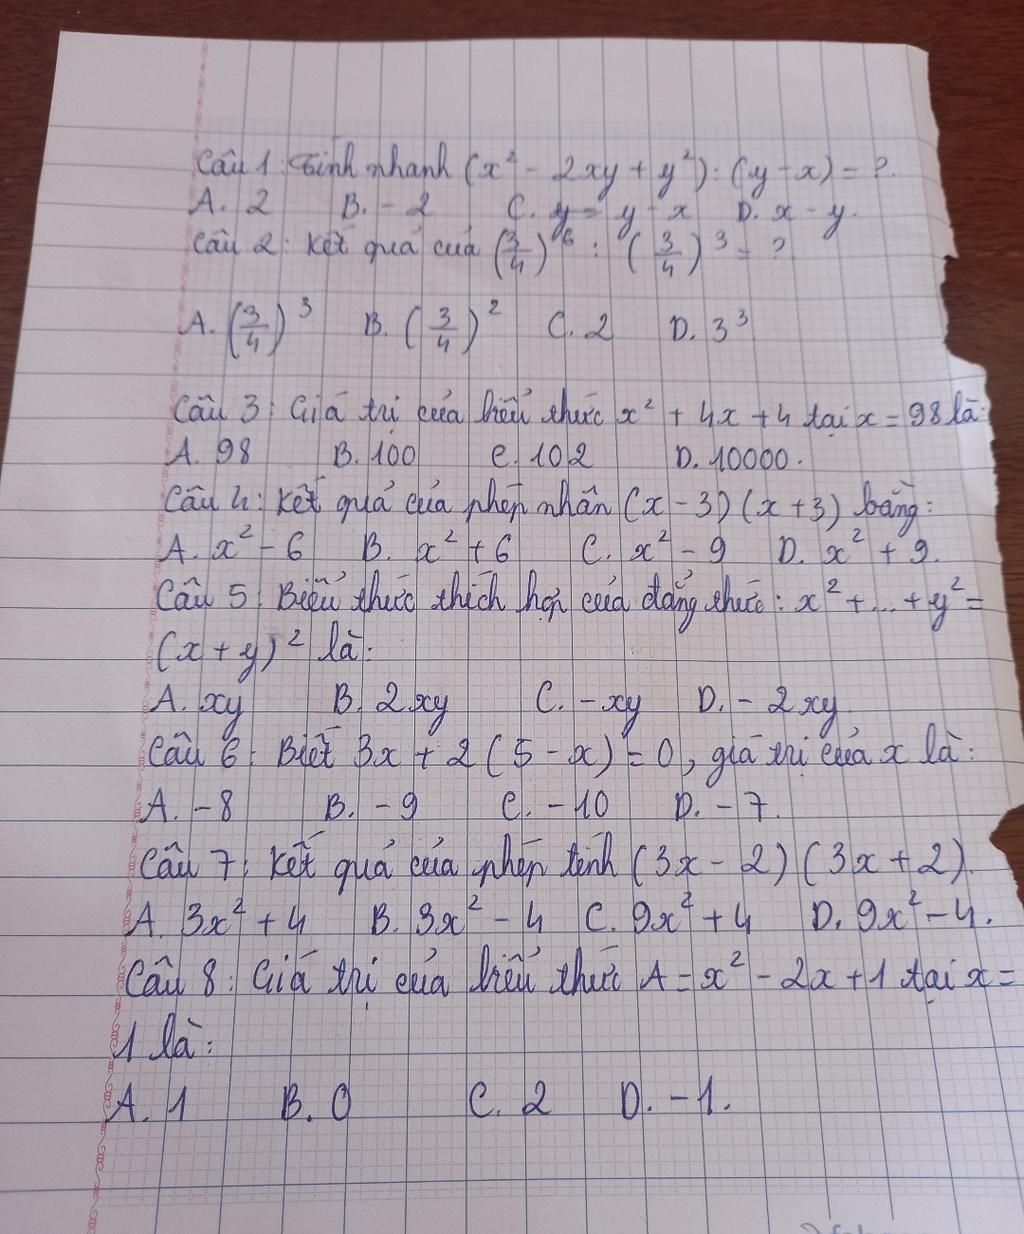 Câu 1: Tính nhanh (x² - 2xy + y²) : (y - x) = ?.
A. 2 B. - 2 C. y = y - x D. x - y.
Câu 2: Kết quả của (3/4)⁶ : (3/4)³ = ?
A. (3/4)³ B. (3/4)² C. 2 D. 3³
Câu 3: Giá trị của biểu thức x² + 4x + 4 tại x = 98 là:
A. 98 B. 100 C. 102 D. 10000.
Câu 4: Kết quả của phép nhân (x - 3) (x + 3) bằng:
A. x² - 6 B. x² + 6 C. x² - 9 D. x² + 9.
Câu 5: Biểu thức thích hợp của đẳng thức: x² + ... + y² =
(x + y)² là:
A. xy B. 2xy C. - xy D. - 2xy
Câu 6: Biết 3x + 2 (5 - x) = 0, giá trị của x là:
A. - 8 B. - 9 C. - 10 D. - 7.
Câu 7: Kết quả của phép tính (3x - 2) (3x + 2).
A. 3x² + 4 B. 3x² - 4 C. 9x² + 4 D. 9x² - 4.
Câu 8: Giá trị của biểu thức A = x² - 2x + 1 tại x =
1 là:
A. 1 B. 0 C. 2 D. - 1.